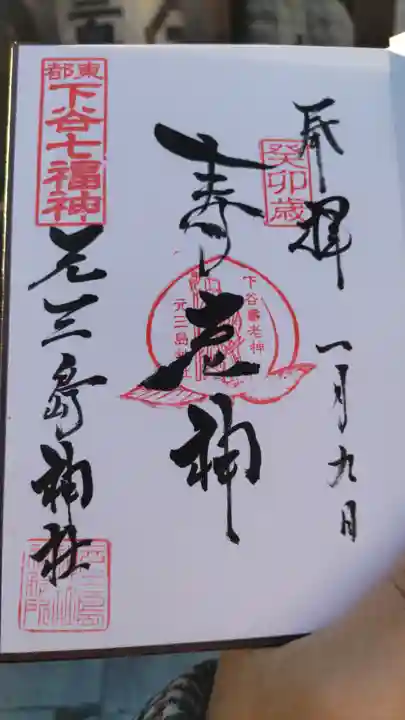 奉拝
癸卯歳
一月九日
寿老神
下谷寿老神
元三島神社
東都
下谷七福神
元三島神社